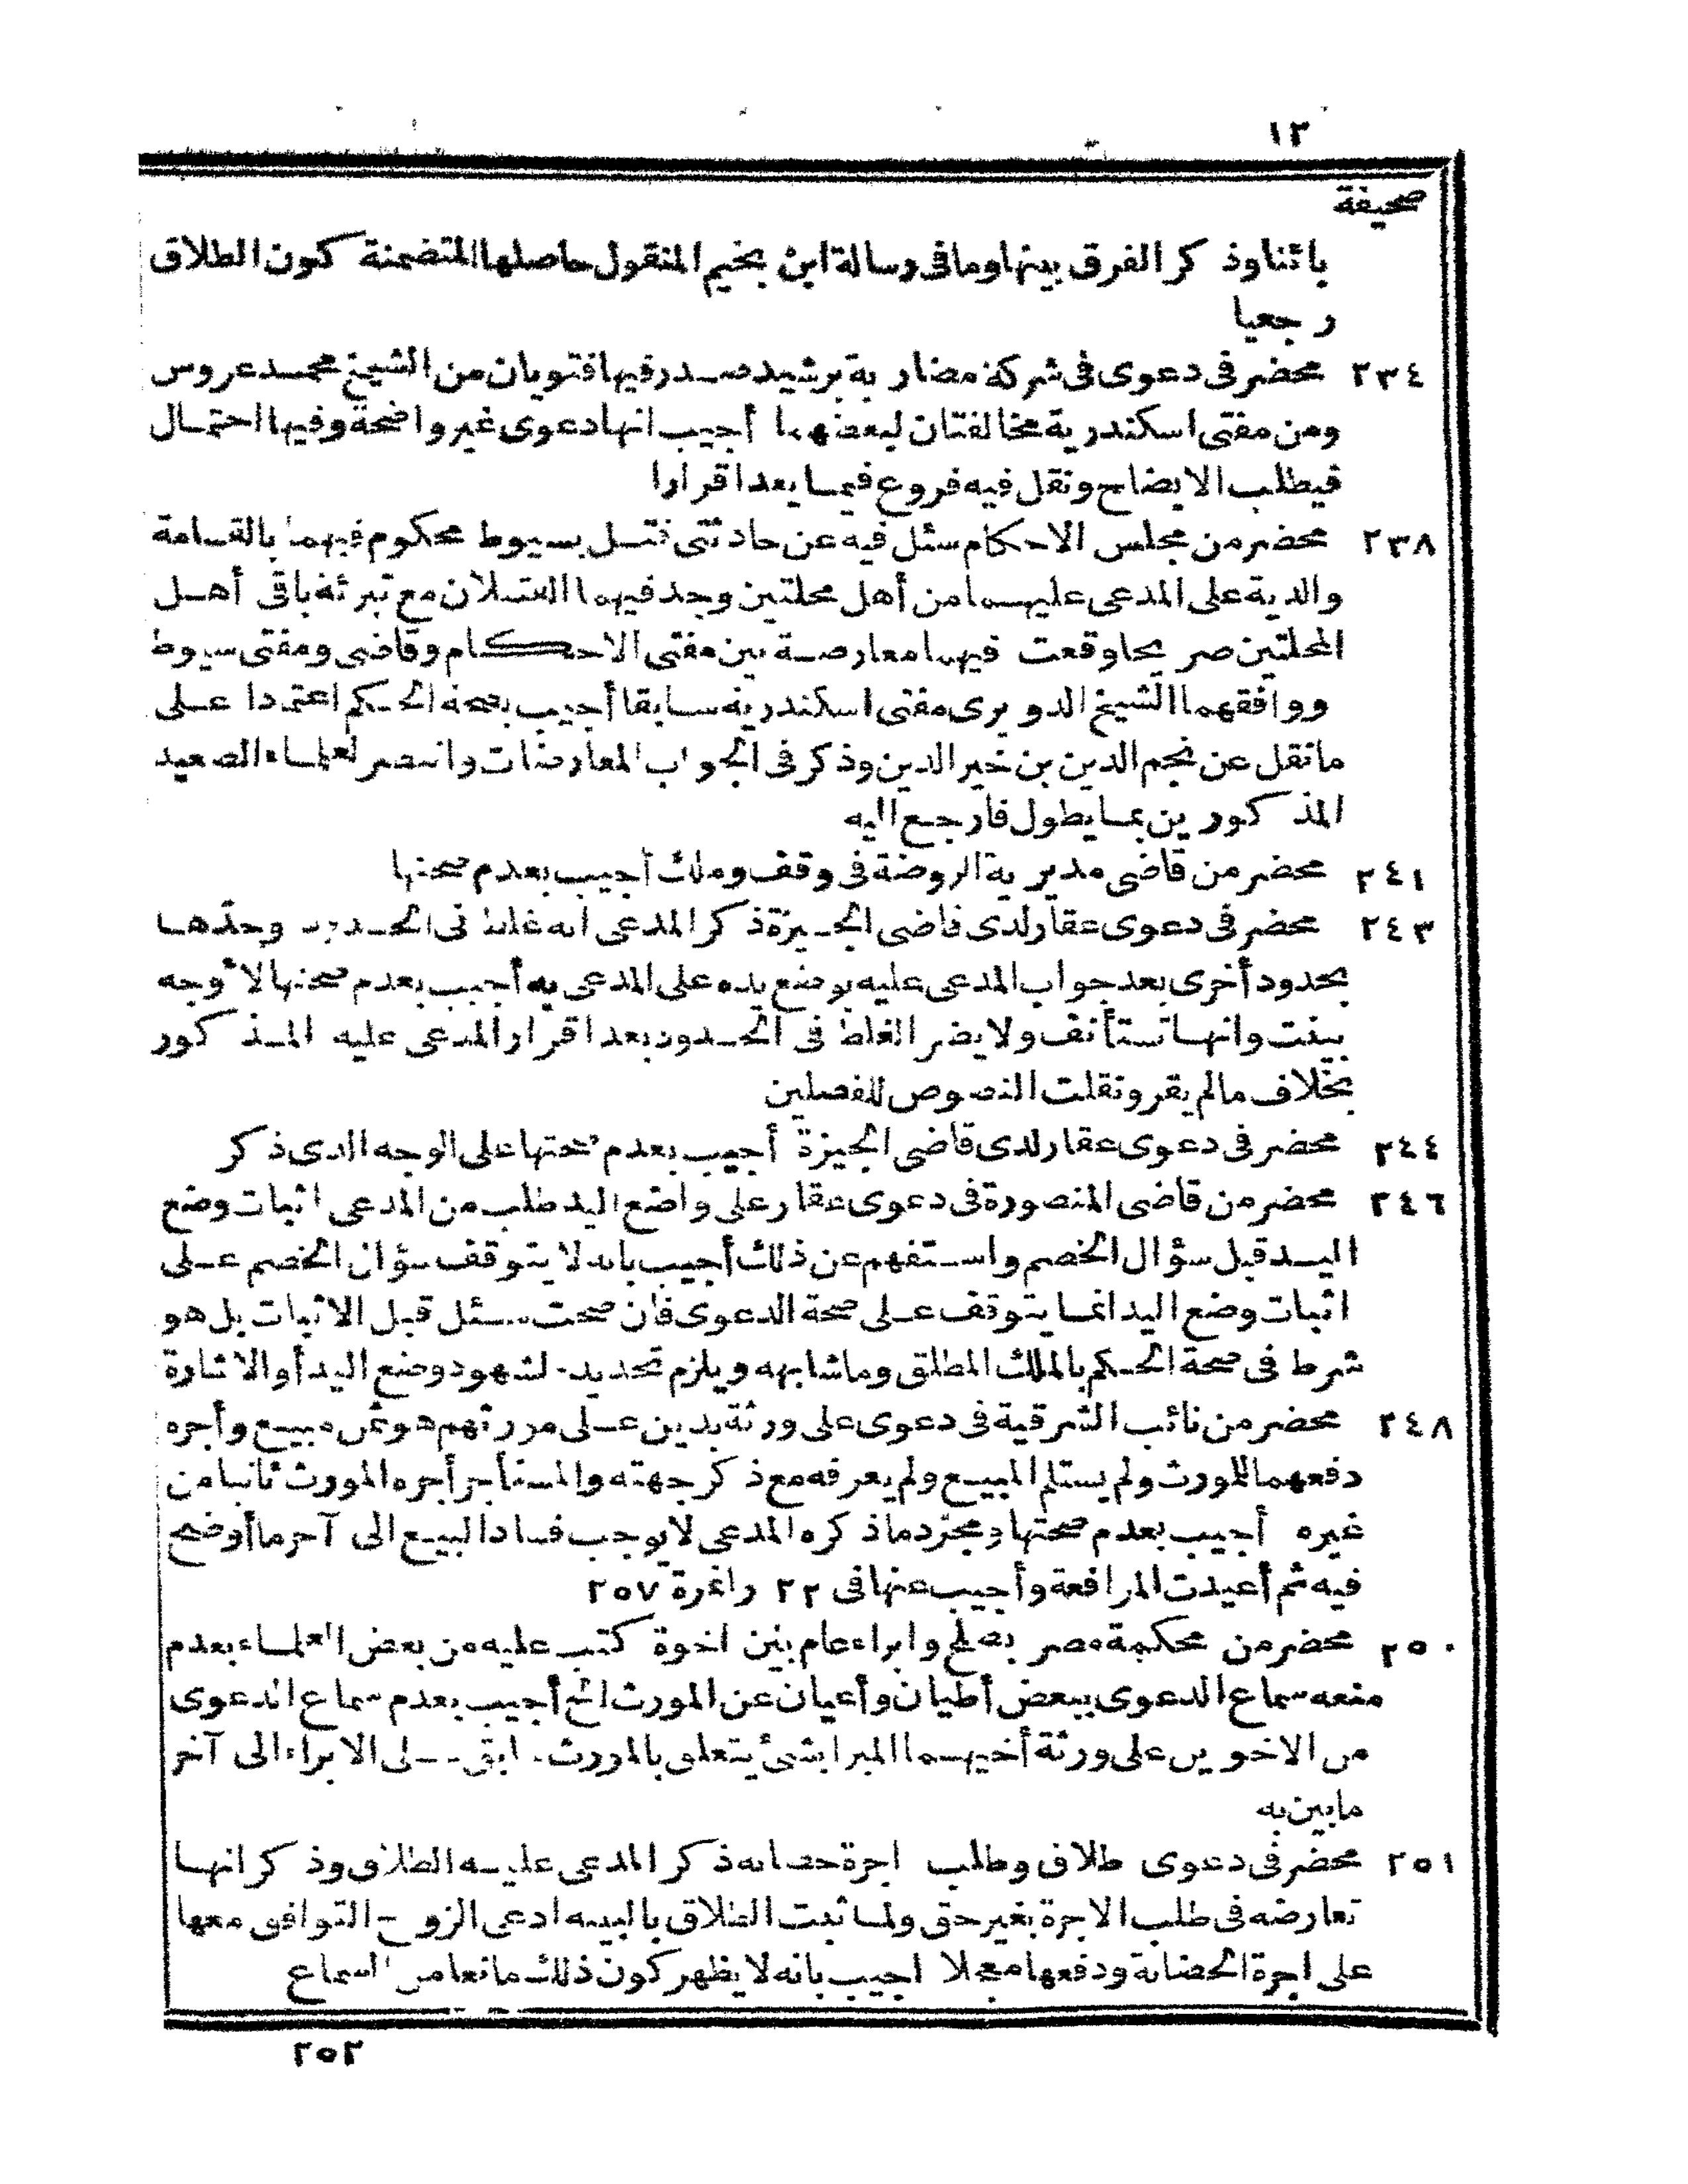 ١٢
صحيفة
بائنا وذكر الفرق بينها وما فى رسالة ابن نجيم المنقول حاصلها المتضمنة كون الطلاق
رجعيا
٢٣٤ محضر فى دعوى فى شركة مضاربة برشيد صدر فيها فتويان من الشيخ محمد عروس
ومن مفتى اسكندرية مخالفتان لبعضهما أجيب انها دعوى غير واضحة وفيها احتمال
فيطلب الايضاح ونقل فيه فروع فيما يعد اقرارا
٢٣٨ محضر من مجلس الاحكام سئل فيه عن حادثتى قتل بسيوط محكوم فيهما بالقسامة
والدية على المدعى عليهما من أهل محلتين وجد فيهما القتيلان مع تبرئة باقى أهل
المحلتين صريحا وقعت فيهما معارضة بين مفتى الاحكام وقاضى ومفتى سيوط
ووافقهما الشيخ الدويرى مفتى اسكندرية سابقا أجيب بصحة الحكم اعتمادا على
ما نقل عن نجم الدين بن خير الدين وذكر فى الجواب المعارضات وانتصر لعلماء الصعيد
المذكورين بما يطول فارجع اليه
٢٤١ محضر من قاضى مديرية الروضة فى وقف وملك أجيب بعدم صحتها
٢٤٣ محضر فى دعوى عقار لدى قاضى الجيزة ذكر المدعى انه غلط فى الحدود وحدّها
بحدود أخرى بعد جواب المدعى عليه بوضع يده على المدعى به أجيب بعدم صحتها لأوجه
بينت وانها تستأنف ولا يضر الغلط فى الحدود بعد اقرار المدعى عليه المذكور
بخلاف ما لم يقر ونقلت النصوص للفصلين
٢٤٤ محضر فى دعوى عقار لدى قاضى الجيزة أجيب بعدم صحتها على الوجه الذى ذكر
٢٤٦ محضر من قاضى المنصورة فى دعوى عقار على واضع اليد طلب من المدعى اثبات وضع
اليد قبل سؤال الخصم واستفهم عن ذلك أجيب بانه لا يتوقف سؤال الخصم على
اثبات وضع اليد انما يتوقف على صحة الدعوى فان صحت سئل قبل الاثبات بل هو
شرط فى صحة الحكم بالملك المطلق وما شابهه ويلزم تحديد لشهود وضع اليد أو الاشارة
٢٤٨ محضر من نائب الشرقية فى دعوى على ورثة بدين على مورثهم هو ثمن مبيع وأجره
دفعهما للمورث ولم يستلم المبيع ولم يعرفه مع ذكر جهته والمستأجر أجره المورث ثانيا من
غيره أجيب بعدم صحتها ومجرّد ما ذكره المدعى لا يوجب فساد البيع الى آخر ما أوضح
فيه ثم أعيدت المرافعة وأجيب عنها فى ٢٢ را نمرة ٢٥٧
٢٥٠ محضر من محكمة مصر بصلح وابراء عام بين اخوة كتب عليه من بعض العلماء بعدم
منعه سماع الدعوى ببعض أطيان وأعيان عن المورث الخ أجيب بعدم سماع الدعوى
من الاخوين على ورثة أخيهما المبرا بشئ يتعلق بالمورث سابق على الابراء الى آخر
ما بين به
٢٥١ محضر فى دعوى طلاق وطلب اجرة حضانه ذكر المدعى عليه الطلاق وذكر انها
تعارضه فى طلب الاجرة بغير حق ولما ثبت الطلاق بالبينه ادعى الزوج التوافق معها
على اجرة الحضانة ودفعها معجلا اجيب بانه لا يظهر كون ذلك مانعا من سماع
٢٥٢